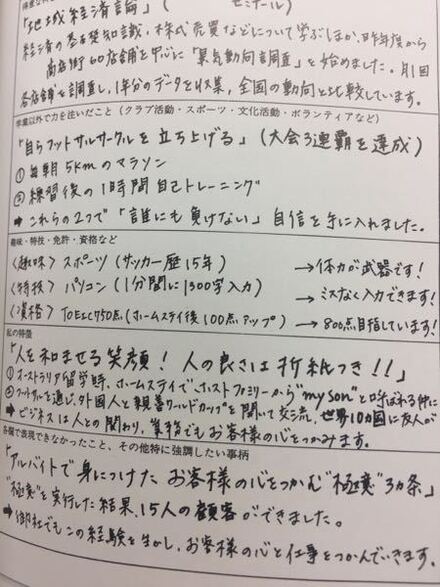 「地域経済論」( ゼミナール)
経済の基礎知識、株式売買などについて学ぶほか、昨年度から
商店街60店舗を中心に「景気動向調査」を始めました。月1回
各店舗を調査し、1年分のデータを収集、全国の動向と比較しています。
学業以外で力を注いだこと(クラブ活動・スポーツ・文化活動・ボランティアなど)
「自らフットサルサークルを立ち上げる」(大会3連覇を達成)
① 毎朝5kmのマラソン
② 練習後の1時間自己トレーニング
→ これらの2つで「誰にも負けない」自信を手に入れました。
趣味・特技・免許・資格など
〈趣味〉スポーツ(サッカー歴15年) →体力が武器です!
〈特技〉パソコン(1分間に1300字入力) →ミスなく入力できます!
〈資格〉TOEIC750点(ホームステイ後100点アップ) →800点目指しています!
私の特徴
「人を和ませる笑顔! 人の良さは折紙つき!!」
① オーストラリア留学時、ホームステイで、ホストファミリーから"my son"と呼ばれる仲に
② フットサルを通じ、外国人と親善ワールドカップを開いて交流、世界10カ国に友人が
→ ビジネスは人との関わり、業務でもお客様の心をつかみます。
各欄で表現できなかったこと、その他特に強調したい事柄
「アルバイトで身につけたお客様の心をつかむ"極意"3カ条」
"極意"を実行した結果、15人の顧客ができました。
→ 御社でもこの経験を生かし、お客様の心と仕事をつかんでいきます。